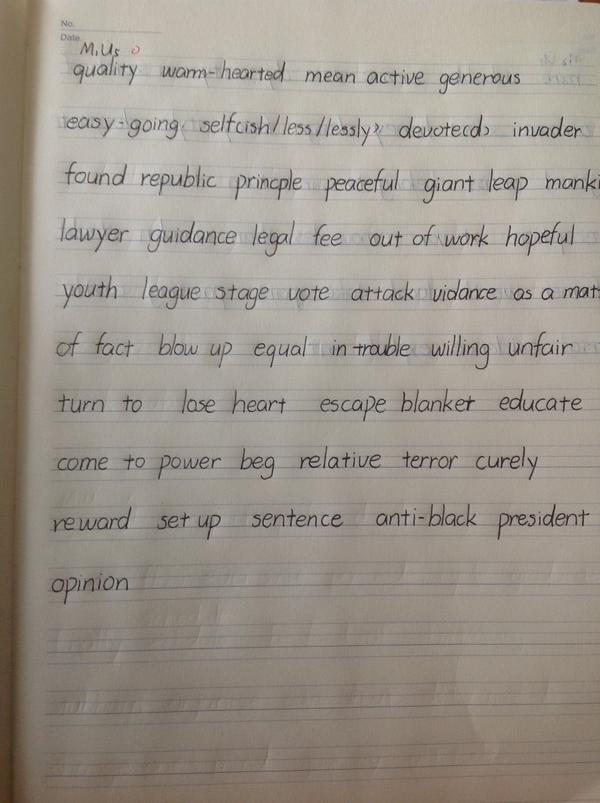 No.
Date
M1U5
quality warm-hearted mean active generous
easy-going selfcish/less/lessly> devotecd> invader
found republic princple peaceful giant leap manki
lawyer guidance legal fee out of work hopeful
youth league stage vote attack vidance as a mat
of fact blow up equal in trouble willing unfair
turn to lose heart escape blanket educate
come to power beg relative terror curely
reward set up sentence anti-black president
opinion